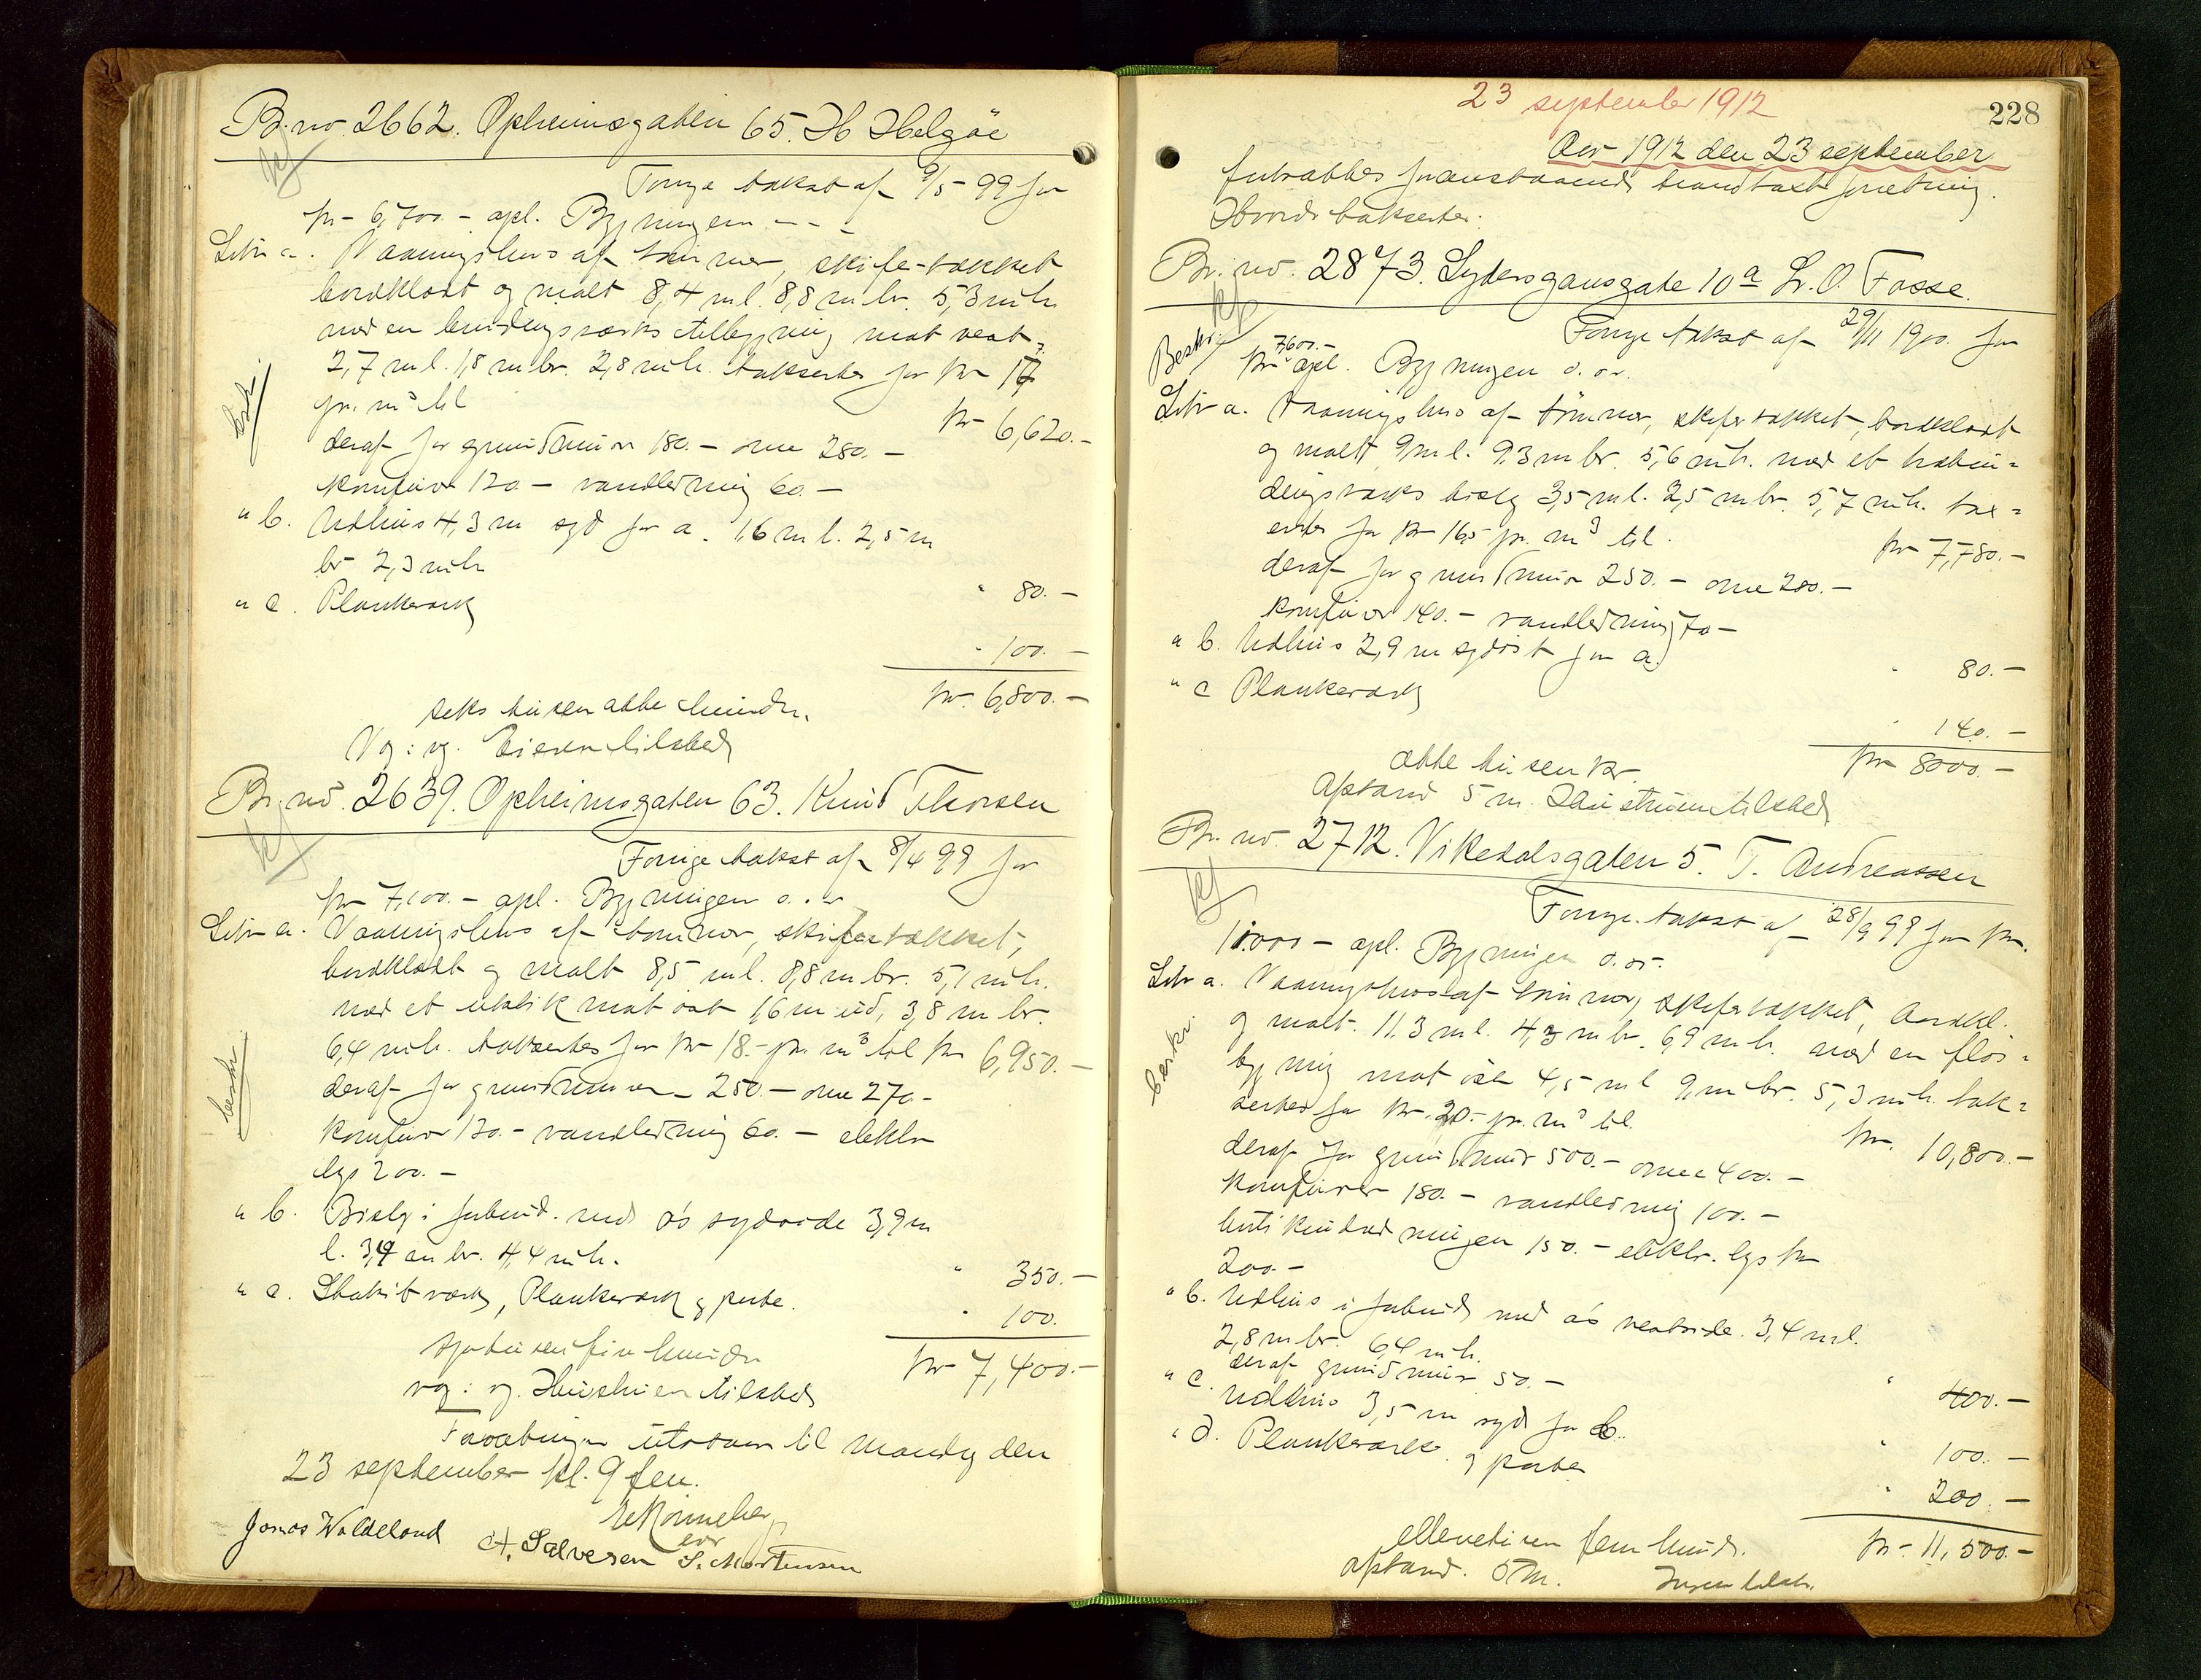 Br. no. 2662. Opheimsgaten 65. H Helgöe
Forrige takst af 9/5 99 for
kr 6,700.- gjel. Bygningen - - -
Litr a. Vaaningshus af tømmer, skifertækket
bordklædt og malt 8,4 m l. 8,8 m br. 5,3 m h.
med en bindingsværks tilbygning mot vest
2,7 m l. 1,8 m br. 2,8 m h. takseres for kr 17
pr. m³ til
kr 6,620.-
deraf for grundmur 180.- ovne 280.-
komfurer 120.- vandledning 60.-
" b. Udhus 4,3 m syd for a. 1,6 m l. 2,5 m
br 2,3 m h
" 80.-
" c. Plankeværk
" 100.-
kr. 6,800.-
seks tusen otte hundr.
Vg: vg. Eieren tilsted
Br. no. 2639. Opheimsgaten 63. Knud Thorsen
Forrige takst af 8/4 99 for
kr 7,100.- gjel. Bygningen o. s. v.
Litr a. Vaaningshus af tømmer, skifertækket,
bordklædt og malt 8,5 m l. 8,8 m br. 5,1 m h.
med et utstik mot øst 1,6 m ud, 3,8 m br.
6,4 m h. takseres for kr 18.- pr. m³ til kr 6,950.-
deraf for grundmuren 250.- ovne 270.-
komfurer 120.- vandledning 60.- elektr
lys 200.-
" b. Bislag i forbind. med a's sydside 3,9 m
l. 3,4 m br. 4,4 m h.
" 350.-
" c. Stakitværk, Plankeværk og porte.
" 100.
kr 7,400.-
syv tusen fire hundr
vg: vg. Hustruen tilsted
Forretningen utsættes til Mandag den
23 september kl. 9 fm.
Jonas Waldeland A. Salvesen S. Mortensen
23 september 1912
228
Aar 1912 den 23 september
fortsattes foranstaaende brandtakstforretning.
Hvorda takseres:
Br. no. 2873. Lyder Sagensgate 10 a L. O. Fosse.
Forrige takst af 29/11 1900 for
Beskr.
kr 7,600.- gjel. Bygningen o. s. v.
Litr a. Vaaningshus af tømmer, skifertækket, bordklædt
og malt 9 m l. 9.3 m br. 5,6 m h. med et trebin=
dingsværks bislag 3,5 m l. 2,5 m br. 5,7 m h. tax=
eres for kr 16,5 pr. m³ til
kr 7,780.-
deraf for grundmur 250.- ovne 280.-
komfurer 140.- vandledning 70-
" b. Udhus 2,9 m sydøst for a.
" 80.-
" c Plankeværk
" 140.-
kr 8000.-
otte tusen kr.
Afstand 5 m. Hustruen tilsted
Br. no. 2712. Vikedalsgaten 5. T. Andreassen
Forrige takst af 28/9 99 for kr.
11.000 - gjel. Bygningen o. s. v.
Litr a. Vaaningshus af tømmer, skifertækket, bordkl.
og malt. 11.3 m l. 4,3 m br. 6,9 m h. med en fløi=
bygning mot øst 4,5 m l 9, m br. 5,3 m h. tak=
seres for kr. 20.- pr. m³ til
kr. 10,800.-
beskr.
deraf for grundmur 500.- ovne 400.-
komfurer 180.- vandledning 100.-
butikindredningen 150.- elektr. lys kr
200.-
" b. Udhus i forbind med a's vestside. 3,4 m l.
2,8 m br. 6,4 m h.
deraf grundmur 50.-
" 400.-
" c. Udhus 3,5 m syd for b.
" 100.-
" d. Plankeværk og porter
" 200.-
kr. 11,500.-
elleve tusen fem hundr.
afstand. 5 m. Ingen tilst.